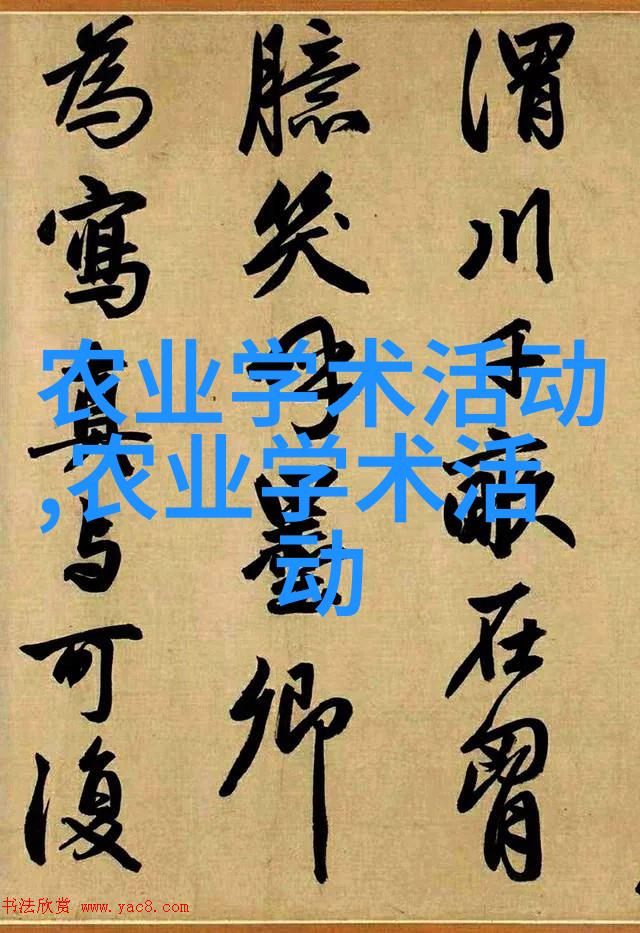 渭川千畝在胷
臆笑呼墨卿
為寫真与可復
农业学术活动
,农业学术活
动
书法欣赏 www.yac8.com